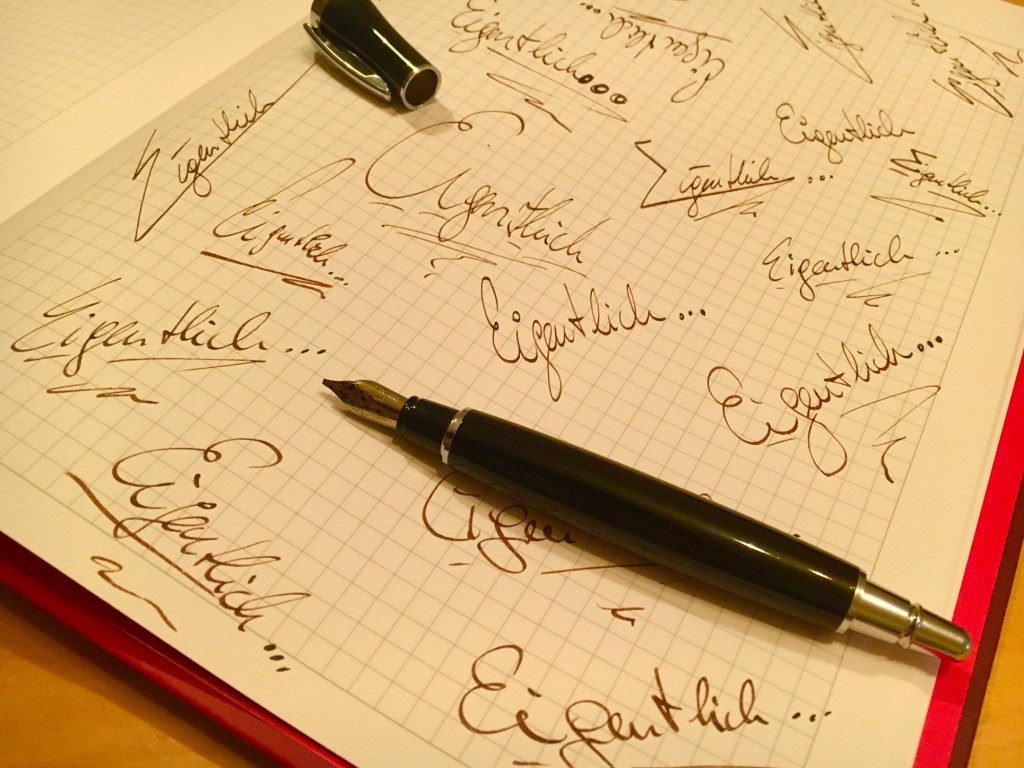 Eigentlich...
Eigentlich
Eigentlich
Eigentlich
Eigentlich
Eigentlich...
Eigentlich...
Eigentlich
Eigentlich...
Eigentlich...
Eigentlich...
Eigentlich...
Eigentlich...
Eigentlich...
Eigentlich...
Eigen
Eigentlich...